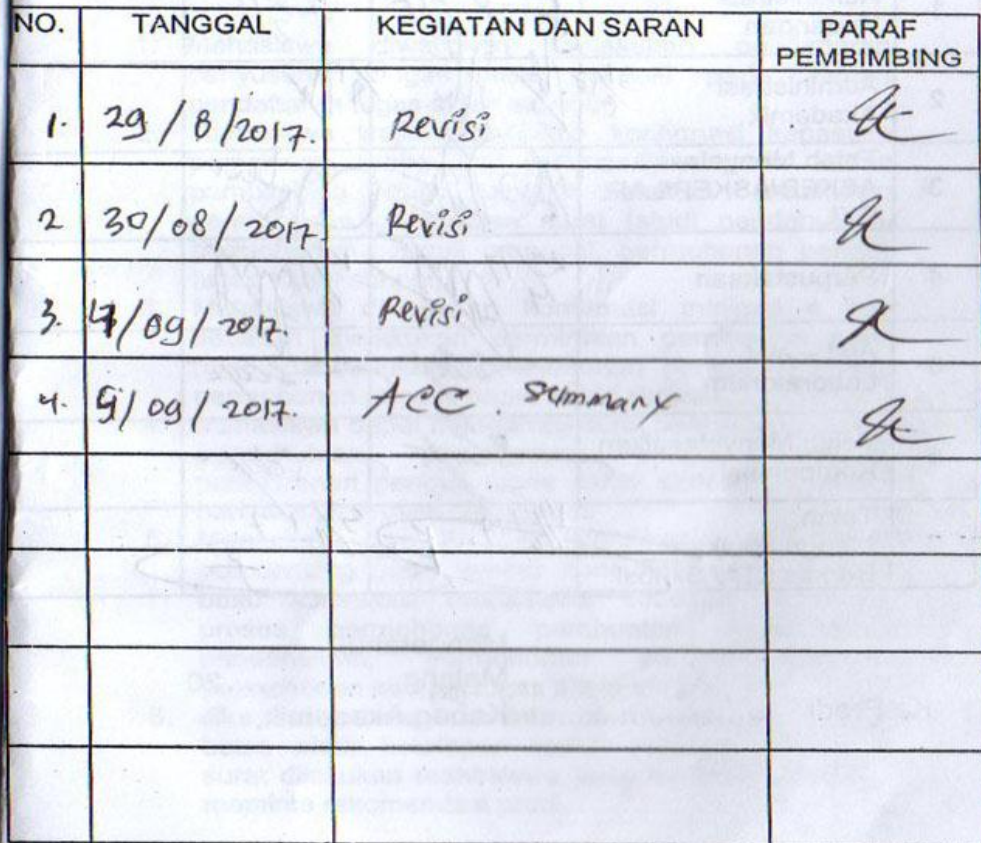 NO. TANGGAL KEGIATAN DAN SARAN PARAF PEMBIMBING
1. 29/8/2017. Revisi
2 30/08/2017 Revisi
3. /09/2017. Revisi
4. /09/2017. ACC. Summary